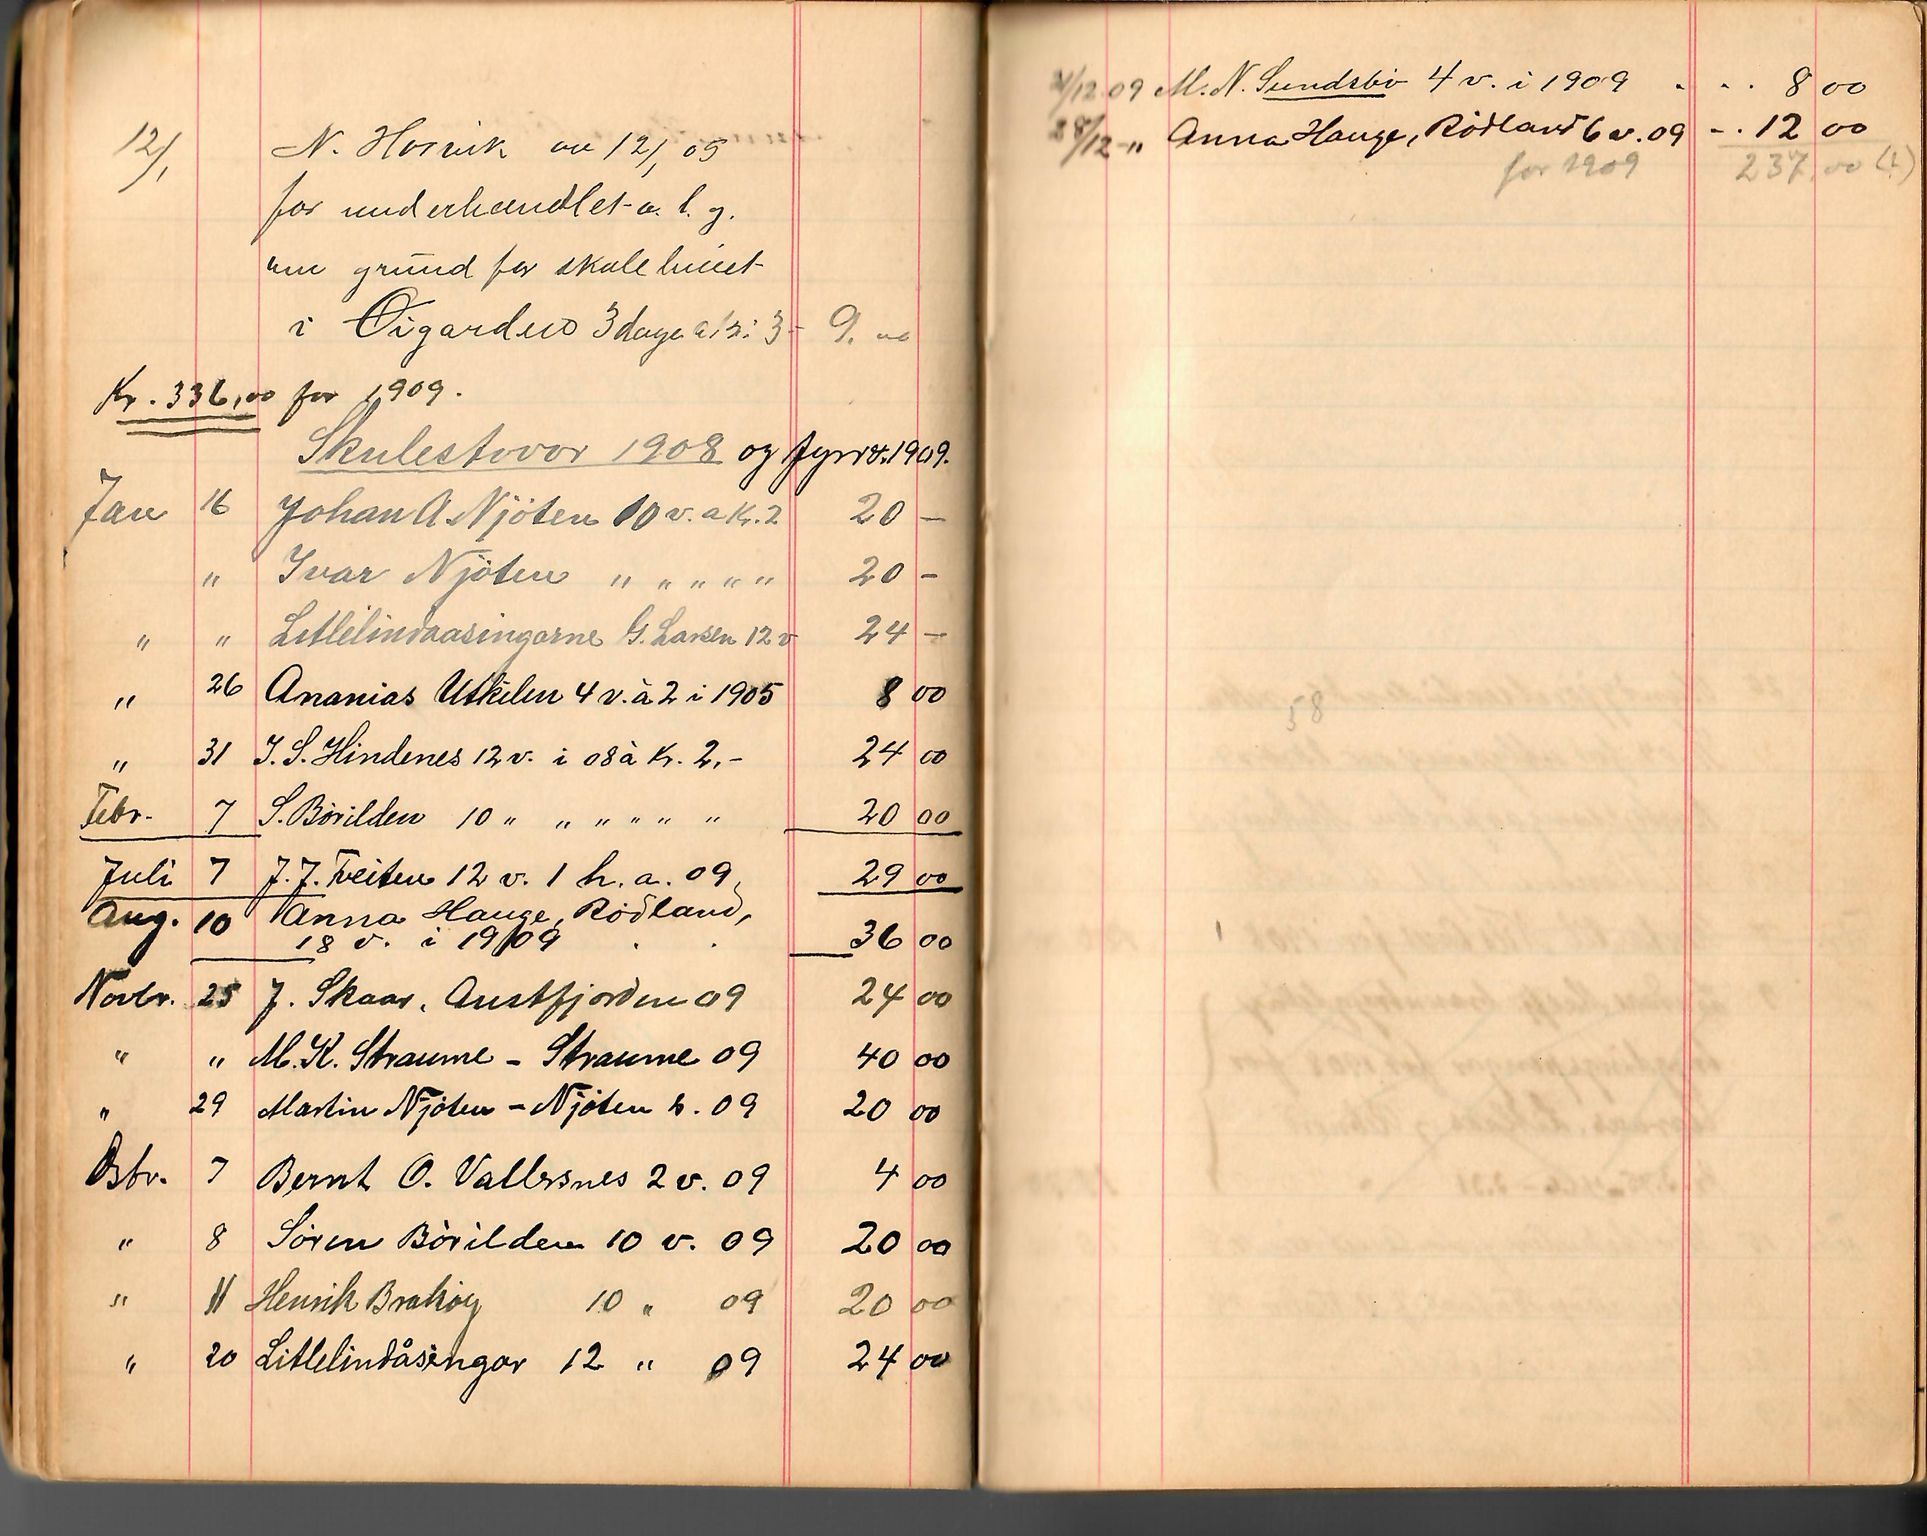 12/1 N. Hosvik av 12/1 05
for underhandlet a. l. g.
um grund for skulehuset
i Øigarden 3 dage a kr 3 - 9.00
Kr. 336,00 for 1909.
Skulestovor 1908 og fyrr. 1909.
Jan 16 Johan A Njöten 10 v. a Kr. 2 20 -
" Ivar Njöten " " " " " 20 -
" " Litlelindaasingarne G. Larsen 12 v 24 -
" 26 Ananias Utkilen 4 v. à 2 i 1905 8 00
" 31 I. S. Hindenes 12 v. i 08 à Kr. 2,- 24 00
Febr. 7 S. Börilden 10 " " " " " " 20 00
Juli 7 J. J. Tveiten 12 v. 1 h. a. 09. 29 00
Aug. 10 Anna Hauge, Rödland,
18 v. i 1909 . . 36 00
Novbr. 25 J. Skaar, Austfjorden 09 24 00
" " M. K. Straume - Straume 09 40 00
" 29 Martin Njöten - Njöten k. 09 20 00
Dsbr. 7 Bernt O. Vallersnes 2 v. 09 4 00
" 8 Sören Börilden 10 v. 09 20 00
" 11 Henrik Bratöy 10 " 09 20 00
" 20 Litlelindåsingar 12 " 09 24 00
21/12 09 M. N. Sundsbö 4 v. i 1909 . . . 8 00
28/12 - " Anna Hauge, Rödland 6 v. 09 - . 12 00
for 1909 237,00 (!)
58